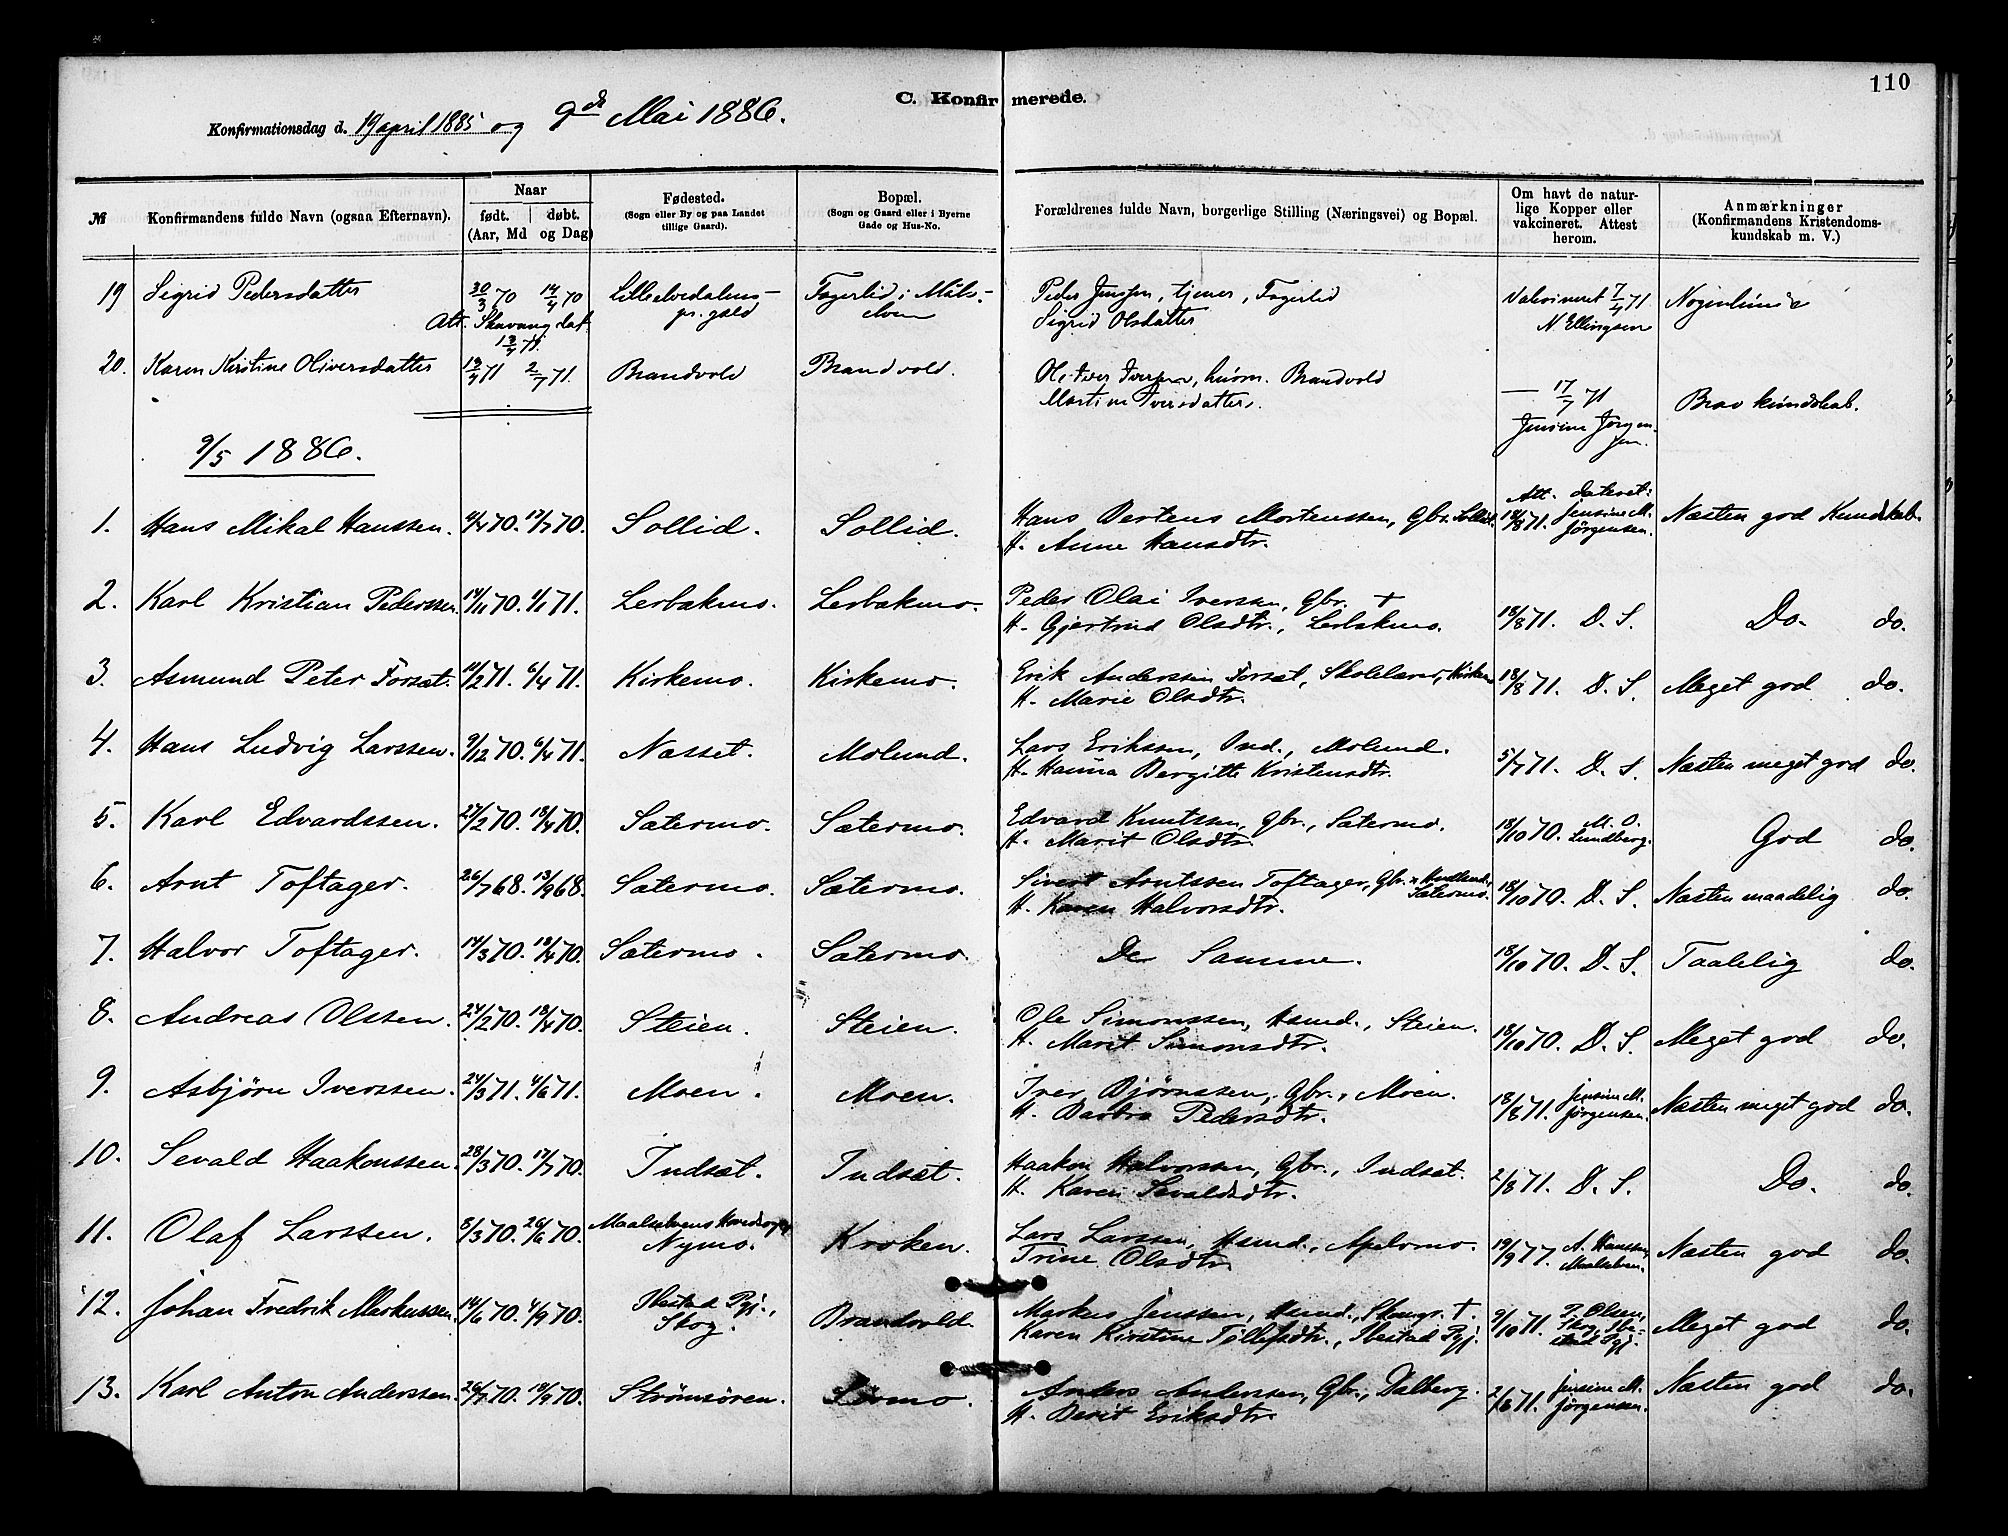 110
C. Konfirmerede.
Konfirmationsdag d. 19 april 1885 og 9de Mai 1886.
№ Konfirmandens fulde Navn (ogsaa Efternavn). Naar født. døbt. (Aar, Md og Dag) Fødested. (Sogn eller By og paa Landet tillige Gaard). Bopæl. (Sogn og Gaard eller i Byerne Gade og Hus-No. Forældrenes fulde Navn, borgerlige Stilling (Næringsvei) og Bopæl. Om havt de naturlige Kopper eller vakcineret. Attest herom. Anmærkninger (Konfirmandens Kristendomskundskab m. V.)
19 Sigrid Pedersdatter 30/3 70 14/4 70 Lilleelvedalens- Fagerlid i Måls- Peder Jenssen, tjener, Fagerlid Vakcineret 7/4 71
Att. Skavang dat. pr.gjeld elven Sigrid Olsdatter N Ellingsen
20. Karen Kirstine Oliversdatter 13/4 71 2/7 71. Brandvold Brandvold. Iversen, husm. Brandvold — 17/7 71 Brav kundskab.
Martine Iversdatter. Jensine Jörgensen
9/5 1886.
1. Hans Mikal Hanssen. 4/4 70. 17/7 70. Sollid. Sollid. Hans Bertens Mortenssen, Gbr. Sollid. Att. dateret: 18/8 71. Jensine M. Jörgensen. Næsten god Kundskab.
H. Anne Hansdtr.
2. Karl Kristian Pederssen. 14/11 70. 1/1 71. Lerbakmo. Lerbakmo. Peder Olai Iverssen, Gbr. + 18/8 71. D. S. Do. do.
H. Gjertrud Olsdtr., Lerbakmo.
3. Asmund Peter Forsæt. 11/2 71. 6/4 71. Kirkemo. Kirkemo. Erik Anderssen Forsæt, Skolelærer, Kirkemo 18/8 71. D. S. Meget god do.
H. Marie Olsdtr.
4. Hans Ludvig Larssen. 9/12 70. 6/4 71. Næsset. Molund. Lars Erikssen, Ind., Molund. 5/7 71. D. S. Næsten meget god do.
H. Hanna Bergitte Kristensdtr.
5. Karl Edvardssen. 27/2 70. 18/4 70. Sætermo. Sætermo. Edvard Knutssen, Gbr., Sætermo. 18/10 70. M. O. Lundberg. God do.
H. Marit Olsdtr.
6. Arnt Toftager. 26/7 68. 13/9 68. Sætermo. Sætermo. Sivert Arntssen Toftager, Gbr. Sætermo. 18/10 70. D. S. Næsten maadelig do.
H. Karen Halvorsdtr.
7. Halvor Toftager. 14/3 70. 18/4 70. Sætermo. Sætermo. De Samme. 18/10 70. D. S. Taalelig do.
8. Andreas Olssen. 24/2 70. 18/4 70. Steien. Steien. Ole Simonssen, Hsmd., Steien. 18/10 70. D. S. Meget god do.
H. Marit Simonsdtr.
9. Asbjørn Iverssen. 24/3 71. 4/6 71. Moen. Moen. Iver Bjørnssen, Gbr., Moen. 18/8 71. Jensine M. Jörgensen. Næsten meget god do.
H. Barbra Pedersdtr.
10. Sevald Haakonssen. 28/3 70. 17/7 70. Indsæt. Indsæt. Haakon Halvorssen, Gbr., Indsæt. 2/8 71. D. S. Do. do.
H. Karen Sevaldsdtr.
11. Olaf Larssen. 8/3 70. 26/6 70. Maalselvens Hovedsogn Nymo. Kroken. Lars Larssen, Hsmd., Apelmo. 19/9 77. A. Hanssen, Maalselven. Næsten god do.
Trine Olsdtr.
12. Johan Fredrik Markussen. 14/6 70. 4/9 70. Ibestad Pgj., Skog. Brandvold. Markus Jenssen, Hsmd., + 9/10 71. P. Olsen, Skog, Ibestad Pgj. Meget god do.
Karen Kirstine Tollefsdtr., Ibestad Pgj.
13. Karl Anton Anderssen. 26/7 70. 18/9 70. Strömsören. Sörmo. Anders Anderssen, Gbr., Dalberg. 2/8 71. Jensine M. Jörgensen. Næsten god do.
H. Berit Eriksdtr.